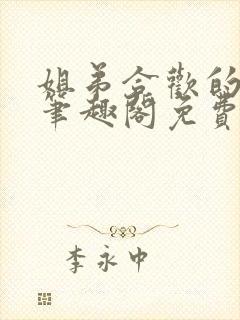 姐弟合歡的
筆趣閣免費
李永中